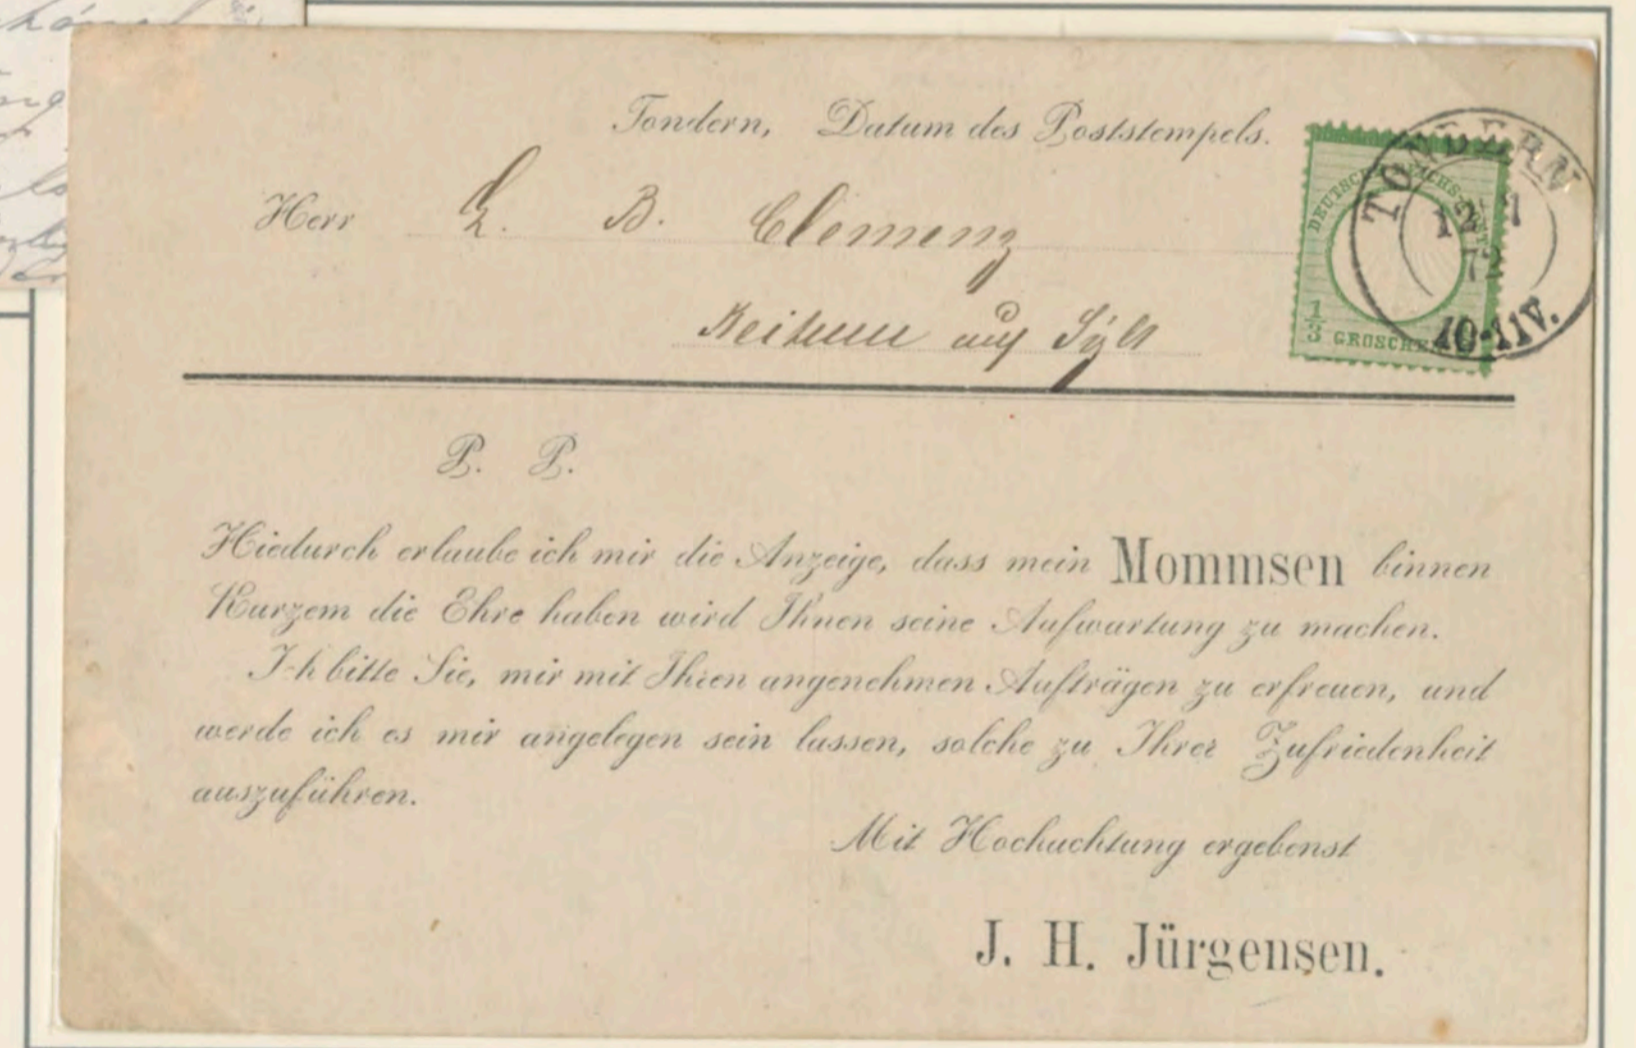 Tondern, Datum des Poststempels.
TONDERN
12 7
72
10-11V.
DEUTSCHE REICHS-POST
1/3 GROSCHEN
Herr L. B. Clemenz
Keitum auf Sylt
P. P.
Hiedurch erlaube ich mir die Anzeige, dass mein Mommsen binnen
Kurzem die Ehre haben wird Ihnen seine Aufwartung zu machen.
Ich bitte Sie, mir mit Ihren angenehmen Aufträgen zu erfreuen, und
werde ich es mir angelegen sein lassen, solche zu Ihrer Zufriedenheit
auszuführen.
Mit Hochachtung ergebenst
J. H. Jürgensen.